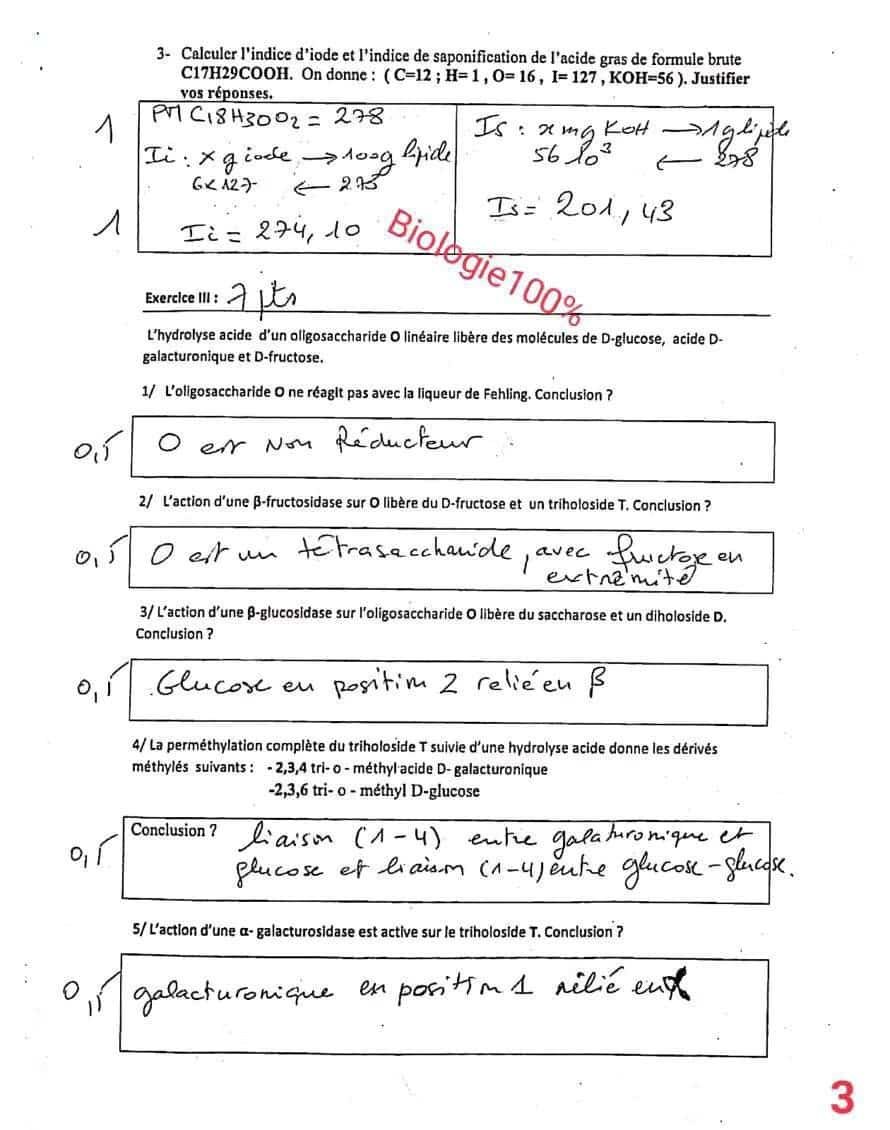 3- Calculer l'indice d'iode et l'indice de saponification de l'acide gras de formule brute
C17H29COOH. On donne : ( C=12 ; H= 1 , O= 16 , I= 127 , KOH=56 ). Justifier
vos réponses.
1
PM C18H30O2 = 278
Ii : x g iode → 100g lipide
6×127 ← 278
1
Ii = 274,10
Is : x mg KOH → 1g lipide
56 10³ ← 278
Is = 201,43
Biologie100%
Exercice III : 7 pts
L'hydrolyse acide d'un oligosaccharide O linéaire libère des molécules de D-glucose, acide D-
galacturonique et D-fructose.
1/ L'oligosaccharide O ne réagit pas avec la liqueur de Fehling. Conclusion ?
0,5
O est Non Réducteur
2/ L'action d'une β-fructosidase sur O libère du D-fructose et un triholoside T. Conclusion ?
0,5
O est un tétrasaccharide, avec fructose en
extrémité
3/ L'action d'une β-glucosidase sur l'oligosaccharide O libère du saccharose et un diholoside D.
Conclusion ?
0,5
Glucose en position 2 relié en β
4/ La perméthylation complète du triholoside T suivie d'une hydrolyse acide donne les dérivés
méthylés suivants : - 2,3,4 tri- o - méthyl acide D- galacturonique
-2,3,6 tri- o - méthyl D-glucose
0,5
Conclusion ? liaison (1-4) entre galaturonique et
glucose et liaison (1-4) entre glucose-glucose.
5/ L'action d'une α- galacturosidase est active sur le triholoside T. Conclusion ?
0,5
galacturonique en position 1 rélié en α
3